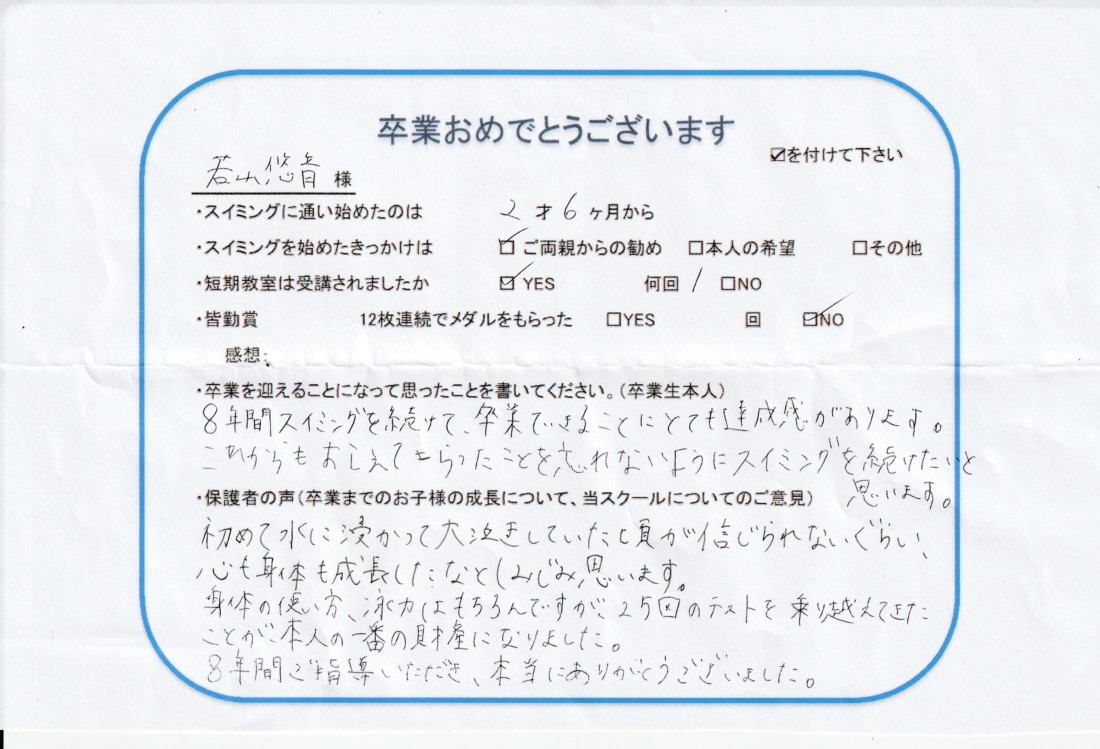 卒業おめでとうございます
☑を付けて下さい
若山悠音 様
・スイミングに通い始めたのは 2 才 6 ヶ月から
・スイミングを始めたきっかけは ☑ご両親からの勧め □本人の希望 □その他
・短期教室は受講されましたか ☑YES 何回 1 □NO
・皆勤賞 12枚連続でメダルをもらった □YES 回 ☑NO
感想:
・卒業を迎えることになって思ったことを書いてください。(卒業生本人)
8年間スイミングを続けて、卒業できることにとても達成感があります。
これからもおしえてもらったことを忘れないようにスイミングを続けたいと
思います。
・保護者の声(卒業までのお子様の成長について、当スクールについてのご意見)
初めて水に浸かって大泣きしていた頃が信じられないぐらい、
心も身体も成長したなとしみじみ思います。
身体の使い方、泳力はもちろんですが25回のテストを乗り越えてきた
ことが本人の一番の財産になりました。
8年間ご指導いただき、本当にありがとうございました。